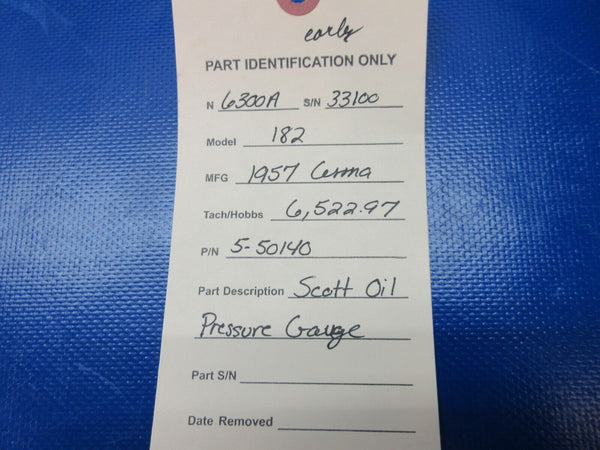 early
PART IDENTIFICATION ONLY
N 6300A S/N 33100
Model 182
MFG 1957 Cessna
Tach/Hobbs 6,522.97
P/N 5-50140
Part Description Scott Oil
Pressure Gauge
Part S/N
Date Removed